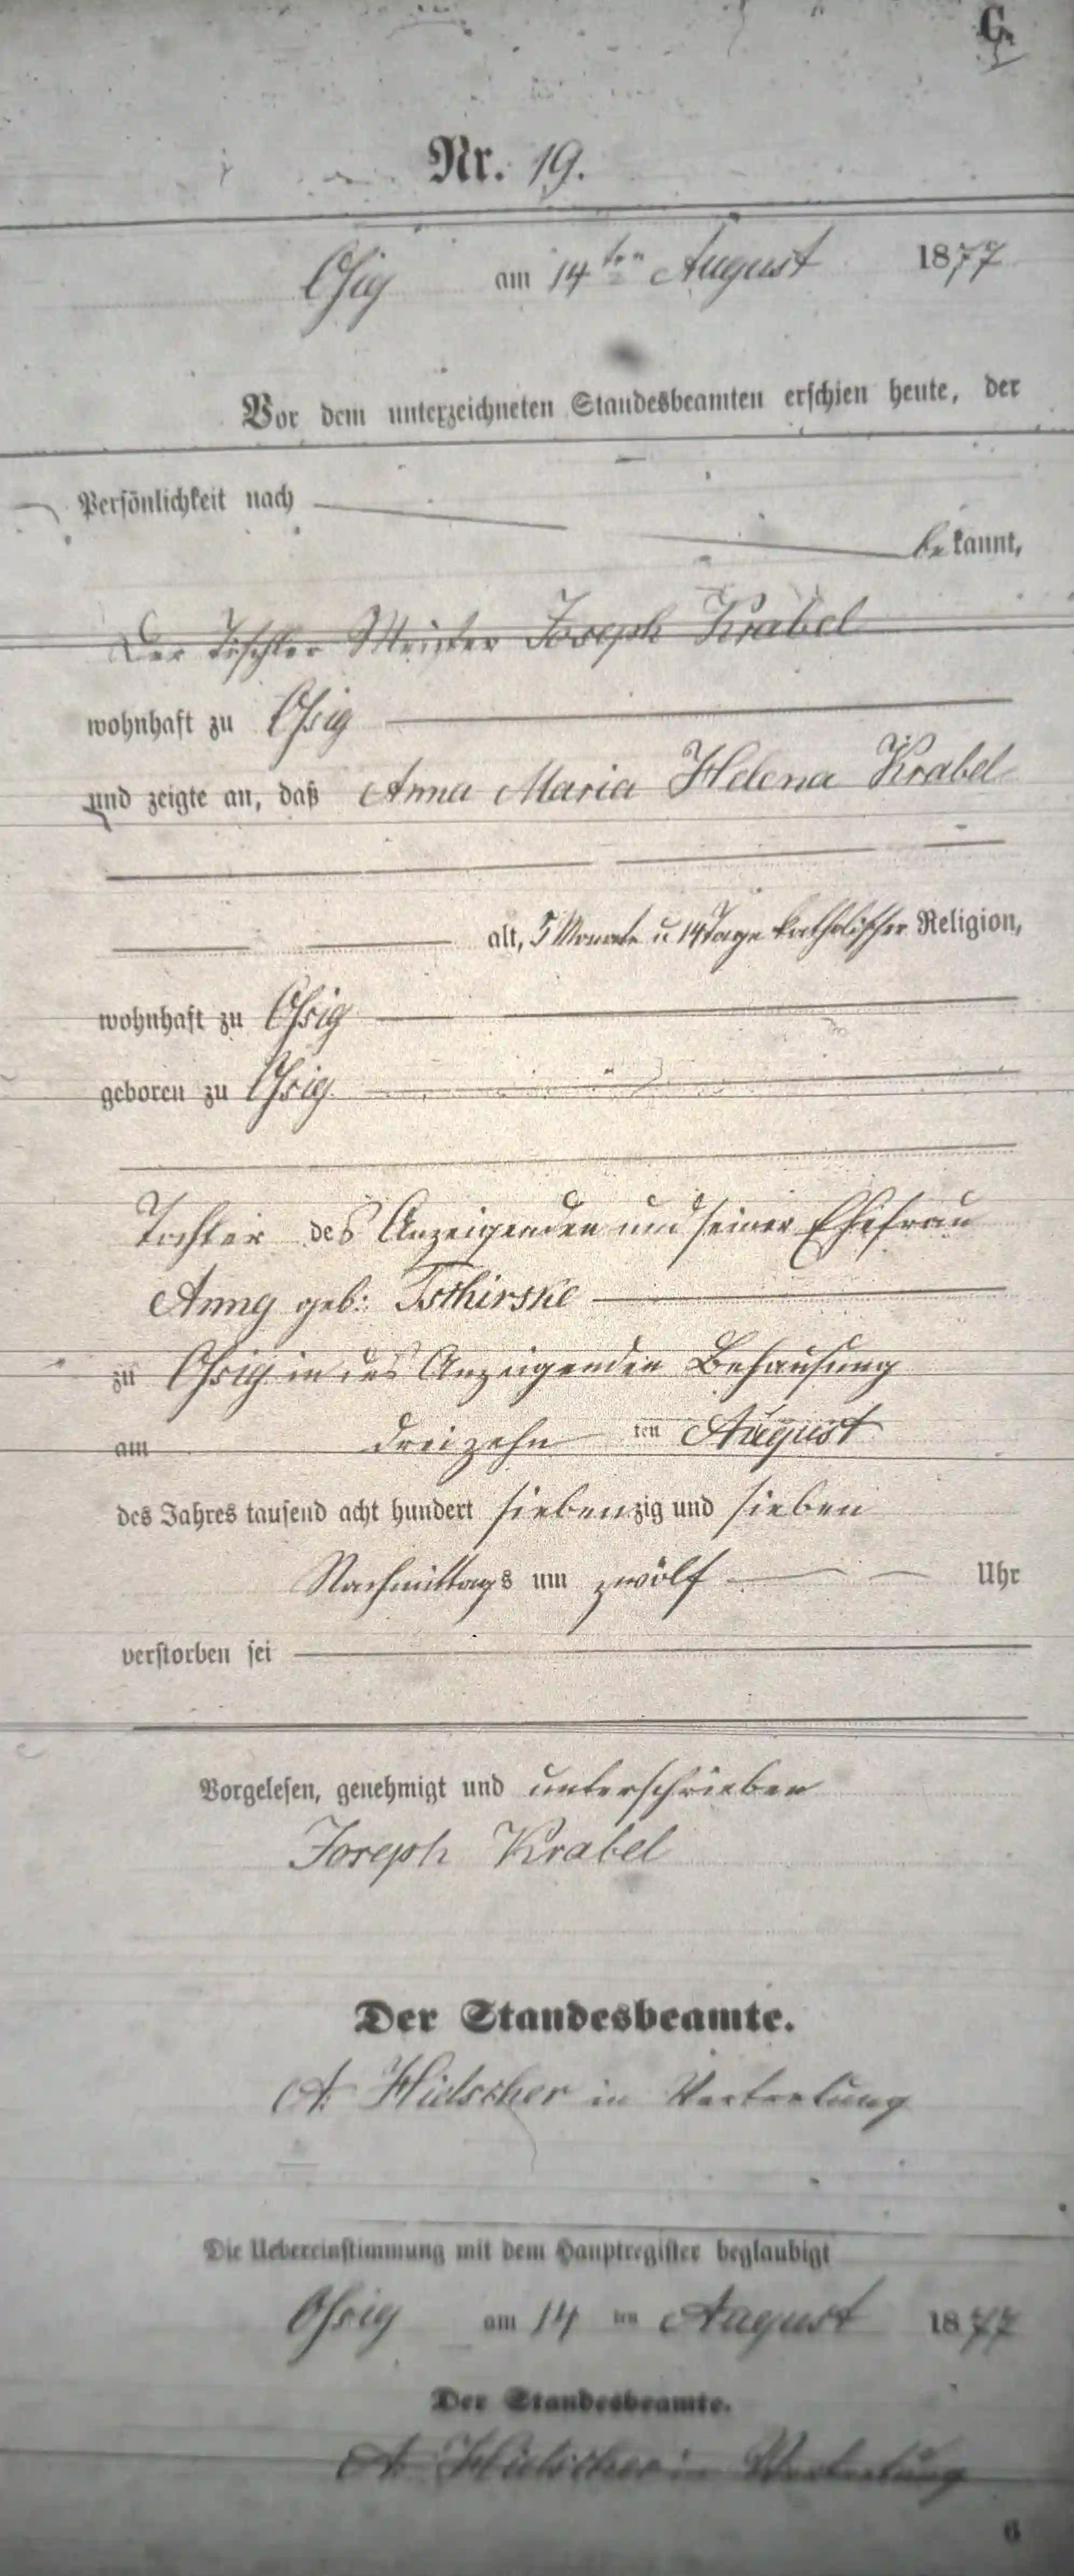 C.
Nr. 19.
Ossig am 14ten August 1877
Vor dem unterzeichneten Standesbeamten erschien heute, der
Persönlichkeit nach
bekannt,
Der Tischler Meister Joseph Krabel
wohnhaft zu Ossig
und zeigte an, daß Anna Maria Helena Krabel
alt, 5 Monate u 14 Tage katholischer Religion,
wohnhaft zu Ossig
geboren zu Ossig
Tochter des Anzeigenden und seiner Ehefrau
Anna geb: Tschirske
zu Ossig in des Anzeigenden Behausung
am dreizehn ten August
des Jahres tausend acht hundert siebenzig und sieben
Nachmittags um zwölf Uhr
verstorben sei
Vorgelesen, genehmigt und unterschrieben
Joseph Krabel
Der Standesbeamte.
A. Hielscher in Vertretung
Die Uebereinstimmung mit dem Hauptregister beglaubigt
Ossig am 14 ten August 1877
Der Standesbeamte.
A. Hielscher in Vertretung
6